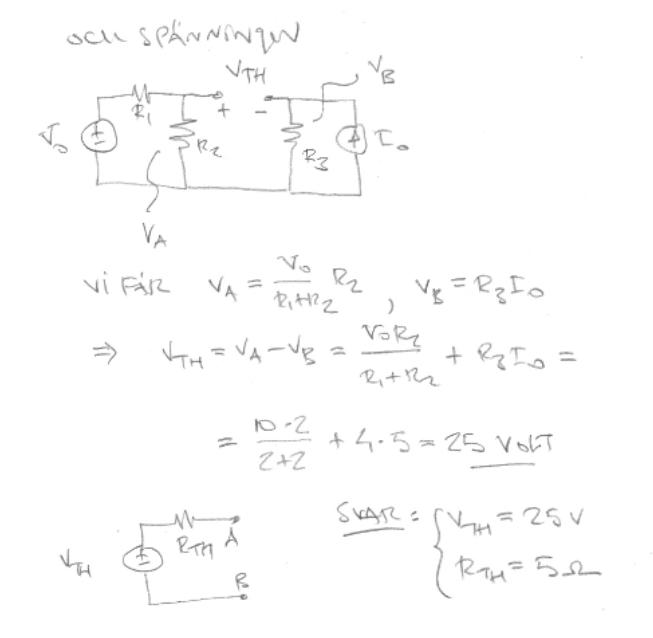 OCH SPÄNNINGEN
V_TH V_B
R_1 + -
V_0 ± R_2 R_3 I_0
V_A
Vi FÅR V_A = V_0/(R_1+R_2) R_2 , V_B = R_3 I_0
⇒ V_TH = V_A - V_B = V_0 R_2/(R_1+R_2) + R_3 I_0 =
= 10·2/(2+2) + 4·5 = 25 VOLT
SVAR: { V_TH = 25 V
R_TH = 5 Ω
V_TH ± R_TH A
B